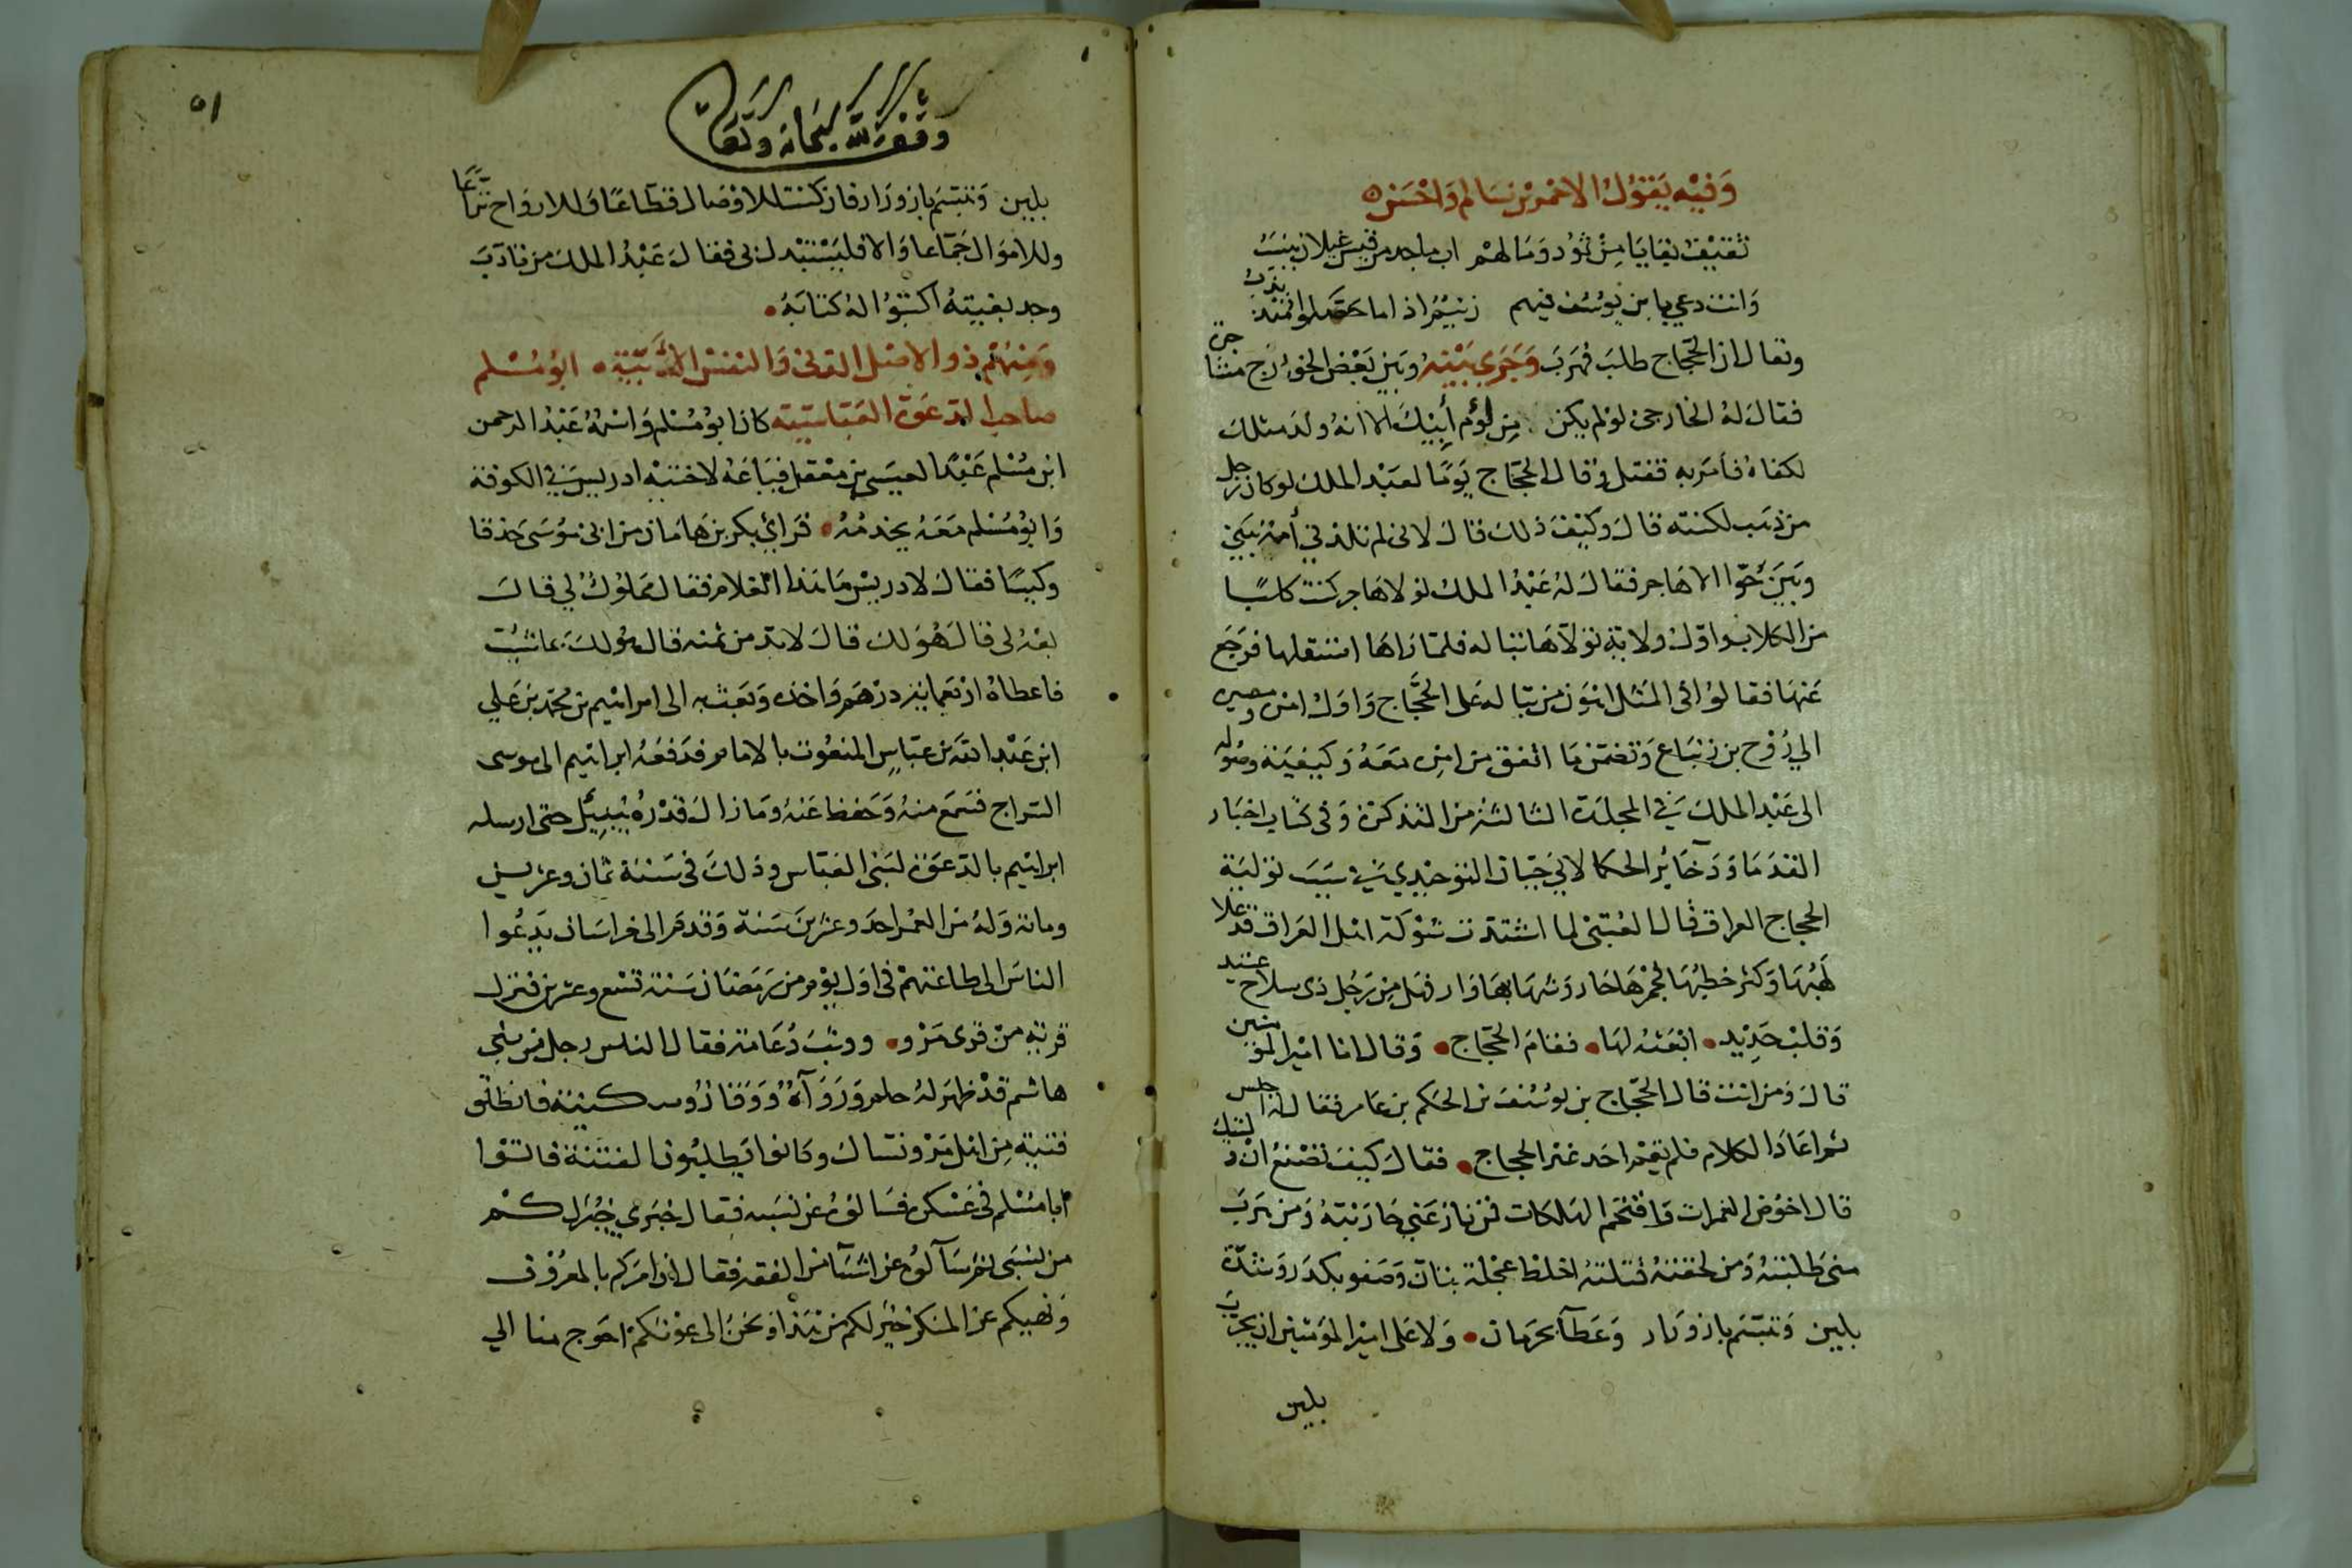 وفيه يقول الاحمر بن سالم واحسن
ثقيف بقايا من ثمود وما لهم اب ماجد من قيس عيلان ينسب
وانت دعي يا بن يوسف فيهم زنيم اذا ما حصلوا تذبذب
ويقال ان الحجاج طلب فهرب وجرى بينه وبين بعض الخوارج
فقال له الخارجي لو لم يكن من لؤم أبيك الا انه ولد مثلك
لكفاه فأمر به فقتل وقال الحجاج يوما لعبد الملك لو كان رجل
من ذهب لكنته قال وكيف ذلك قال لانى لم تلدني أمة بيني
وبين حوا الا هاجر فقال له عبد الملك لولا هاجر كنت كلبا
من الكلاب واول ولاية تولاها تبالة فلما رآها استقلها فرجع
عنها فقالوا في المثل اهون من تبالة على الحجاج واول امره مصيره
الي روح بن زنباع وتضمن ما اتفق من امره معه وكيفية وصوله
الى عبد الملك في المجلدة الثالثة من التذكرة وفى كتاب اخبار
القدما وذخائر الحكما لابي حيان التوحيدي في سبب تولية
الحجاج العراق قال العتبى لما اشتدت شوكة اهل العراق قد علا
لهبها وكثر خطبها فجمرها حار وشهابها وار فهل من رجل ذى سلاح عتيد
وقلب حديد ابعثه لها فقام الحجاج وقال انا امير المؤمنين
قال ومن انت قال الحجاج بن يوسف بن الحكم بن عامر فقال له اجلس
ثم اعاد الكلام فلم يقم احد غير الحجاج فقال كيف تصنع ان وليتك
قال اخوض الغمرات واقتحم الهلكات فمن نازعني حاربته ومن هرب
مني طلبته ومن لحقته قتلته اخلط عجلة بتأن وصفو بكدر وشدة
بلين وتبسم بازورار وعطآ بحرمان ولا على امير المؤمنين ان يجرب
بلين
٥١
وقف لله سبحانه وتعالى
بلين وتبسم بازورار فان كنت للاوصال قطاعا وللارواح نزاعا
وللاموال جماعا والا فليستبدل بى فقال عبد الملك من تأدب
وجد بغيته اكتبوا له كتابه
ومنهم ذو الاصل الدنى والنفس الأبية ابو مسلم
صاحب الدعوة العباسية كان ابو مسلم واسمه عبد الرحمن
ابن مسلم عبدا لعيسى بن معقل فباعه لاخيه ادريس في الكوفة
وابو مسلم معه يخدمه فرأي بكر بن هامان من ابى موسى حذقا
وكيسا فقال لادريس ما هذا الغلام فقال مملوك لي قال
بعه لى قال هو لك قال لابد من ثمنه قال هو لك بما شئت
فاعطاه اربعمائة درهم واخذه وبعث به الى ابراهيم بن محمد بن علي
ابن عبد الله بن عباس المنعوت بالامام فدفعه ابراهيم الى موسى
السراج فسمع منه وحفظ عنه وما زال قدره حتى ارسله
ابراهيم بالدعوة لبنى العباس وذلك فى سنة ثمان وعشرين
ومائة وله من العمر احد وعشرين سنة وقدم الى خراسان يدعوا
الناس الى طاعتهم فى اول يوم من رمضان سنة تسع وعشرين فنزل
قرية من قرى مرو وبث دعاته فقال الناس رجل من بني
هاشم قد ظهر له حلم ورواء ووقار وسكينة فانطلق
فتية من اهل مرو نساك وكانوا يطلبون الفتنة فاتوا
ابا مسلم فى عسكره فسالوه عن نسبه فقال خبرى خير لكم
من نسبى ثم سألوه عن اشيآ من الفقه فقال ان امركم بالمعروف
ونهيكم عن المنكر خير لكم من هذا ونحن الى عونكم احوج منا الي